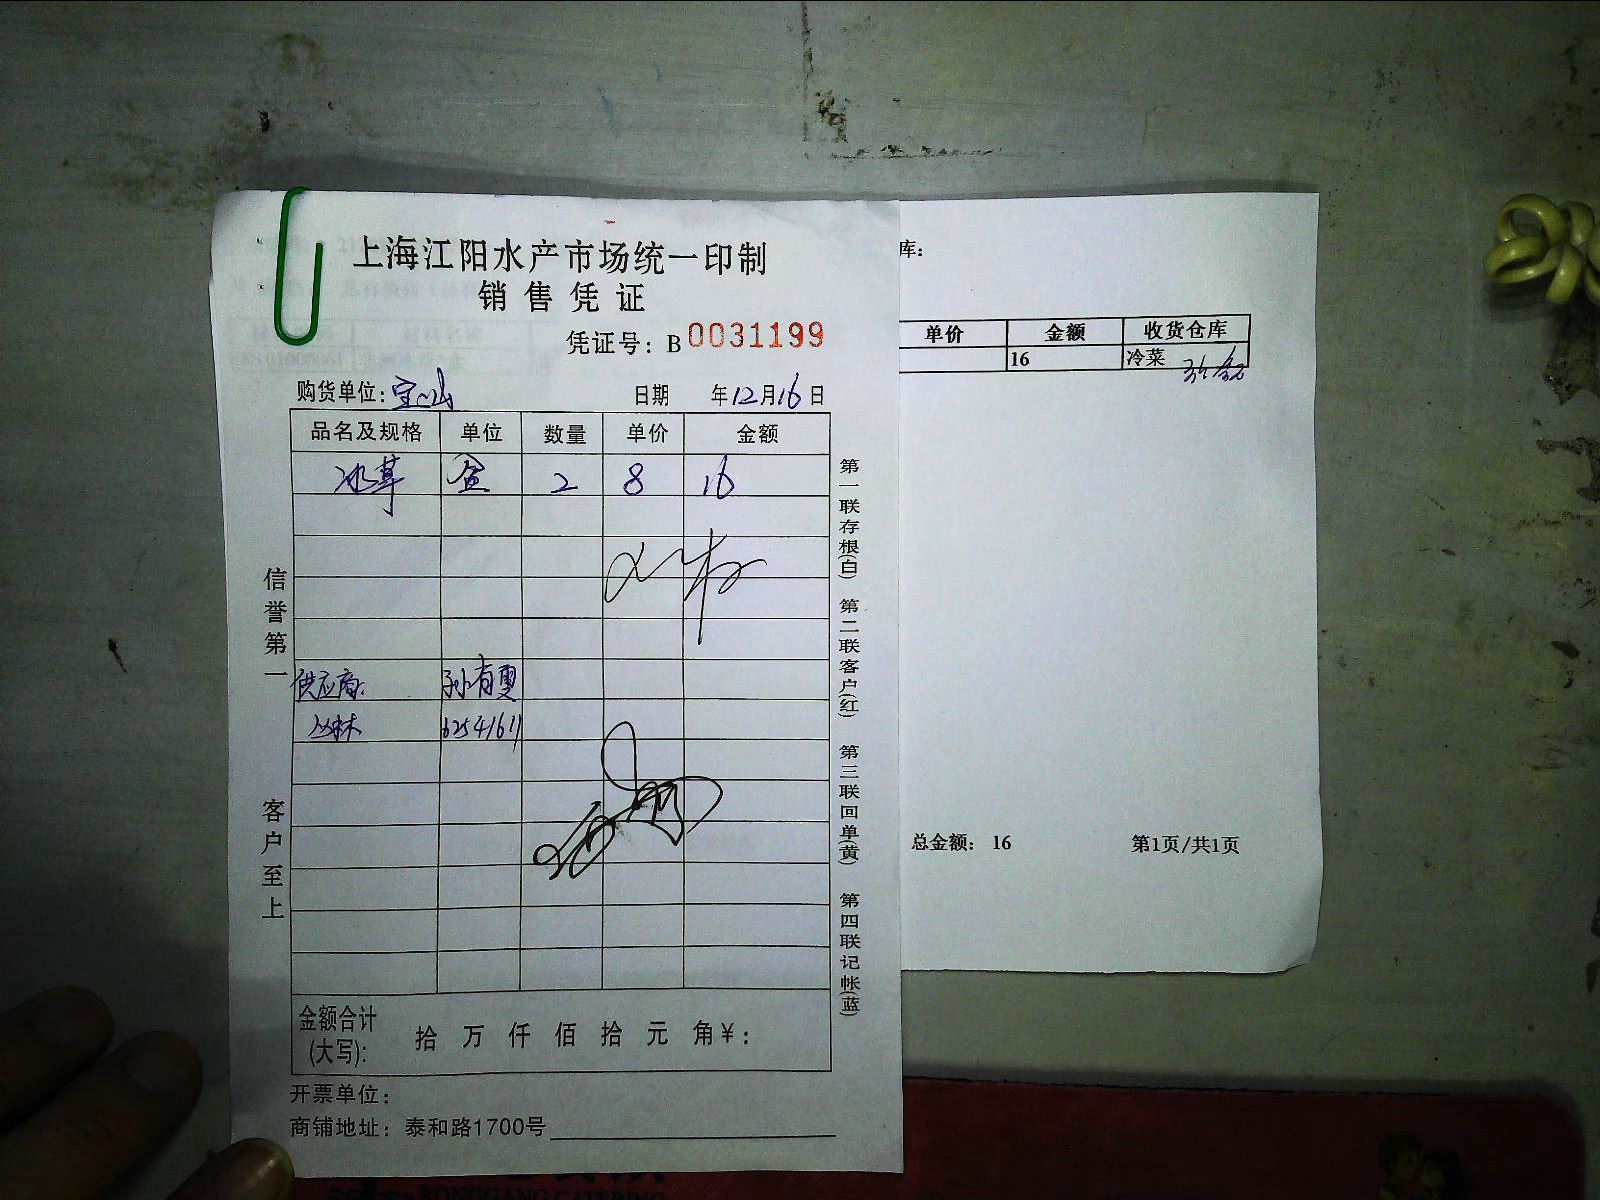 上海江阳水产市场统一印制
销售凭证
凭证号：B 0031199
购货单位：宝山 日期 年12月16日
品名及规格 单位 数量 单价 金额
冰草 盒 2 8 16
供应商： 孙有更
丛林 62541611
金额合计(大写)： 拾 万 仟 佰 拾 元 角￥：
开票单位：
商铺地址：泰和路1700号
信誉第一 客户至上
第一联存根(白) 第二联客户(红) 第三联回单(黄) 第四联记帐(蓝)
库：
单价 金额 收货仓库
16 冷菜
总金额： 16 第1页/共1页